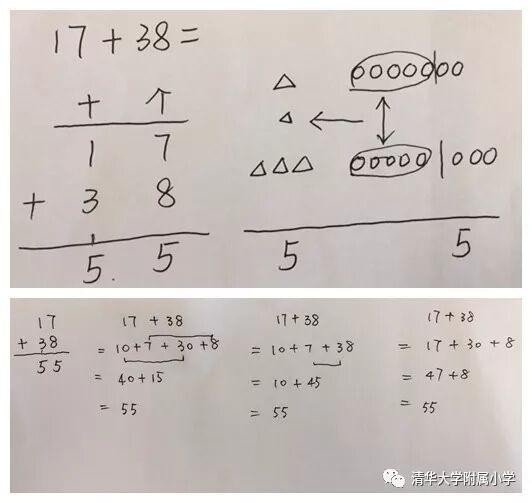 17+38=
十 个
1 7
+ 3 8
1
5 5
5 5
17
+ 38
55
17 + 38
= 10+7+30+8
= 40+15
= 55
17+38
= 10+7+38
= 10+45
= 55
17+38
= 17+30+8
= 47+8
= 55
清华大学附属小学